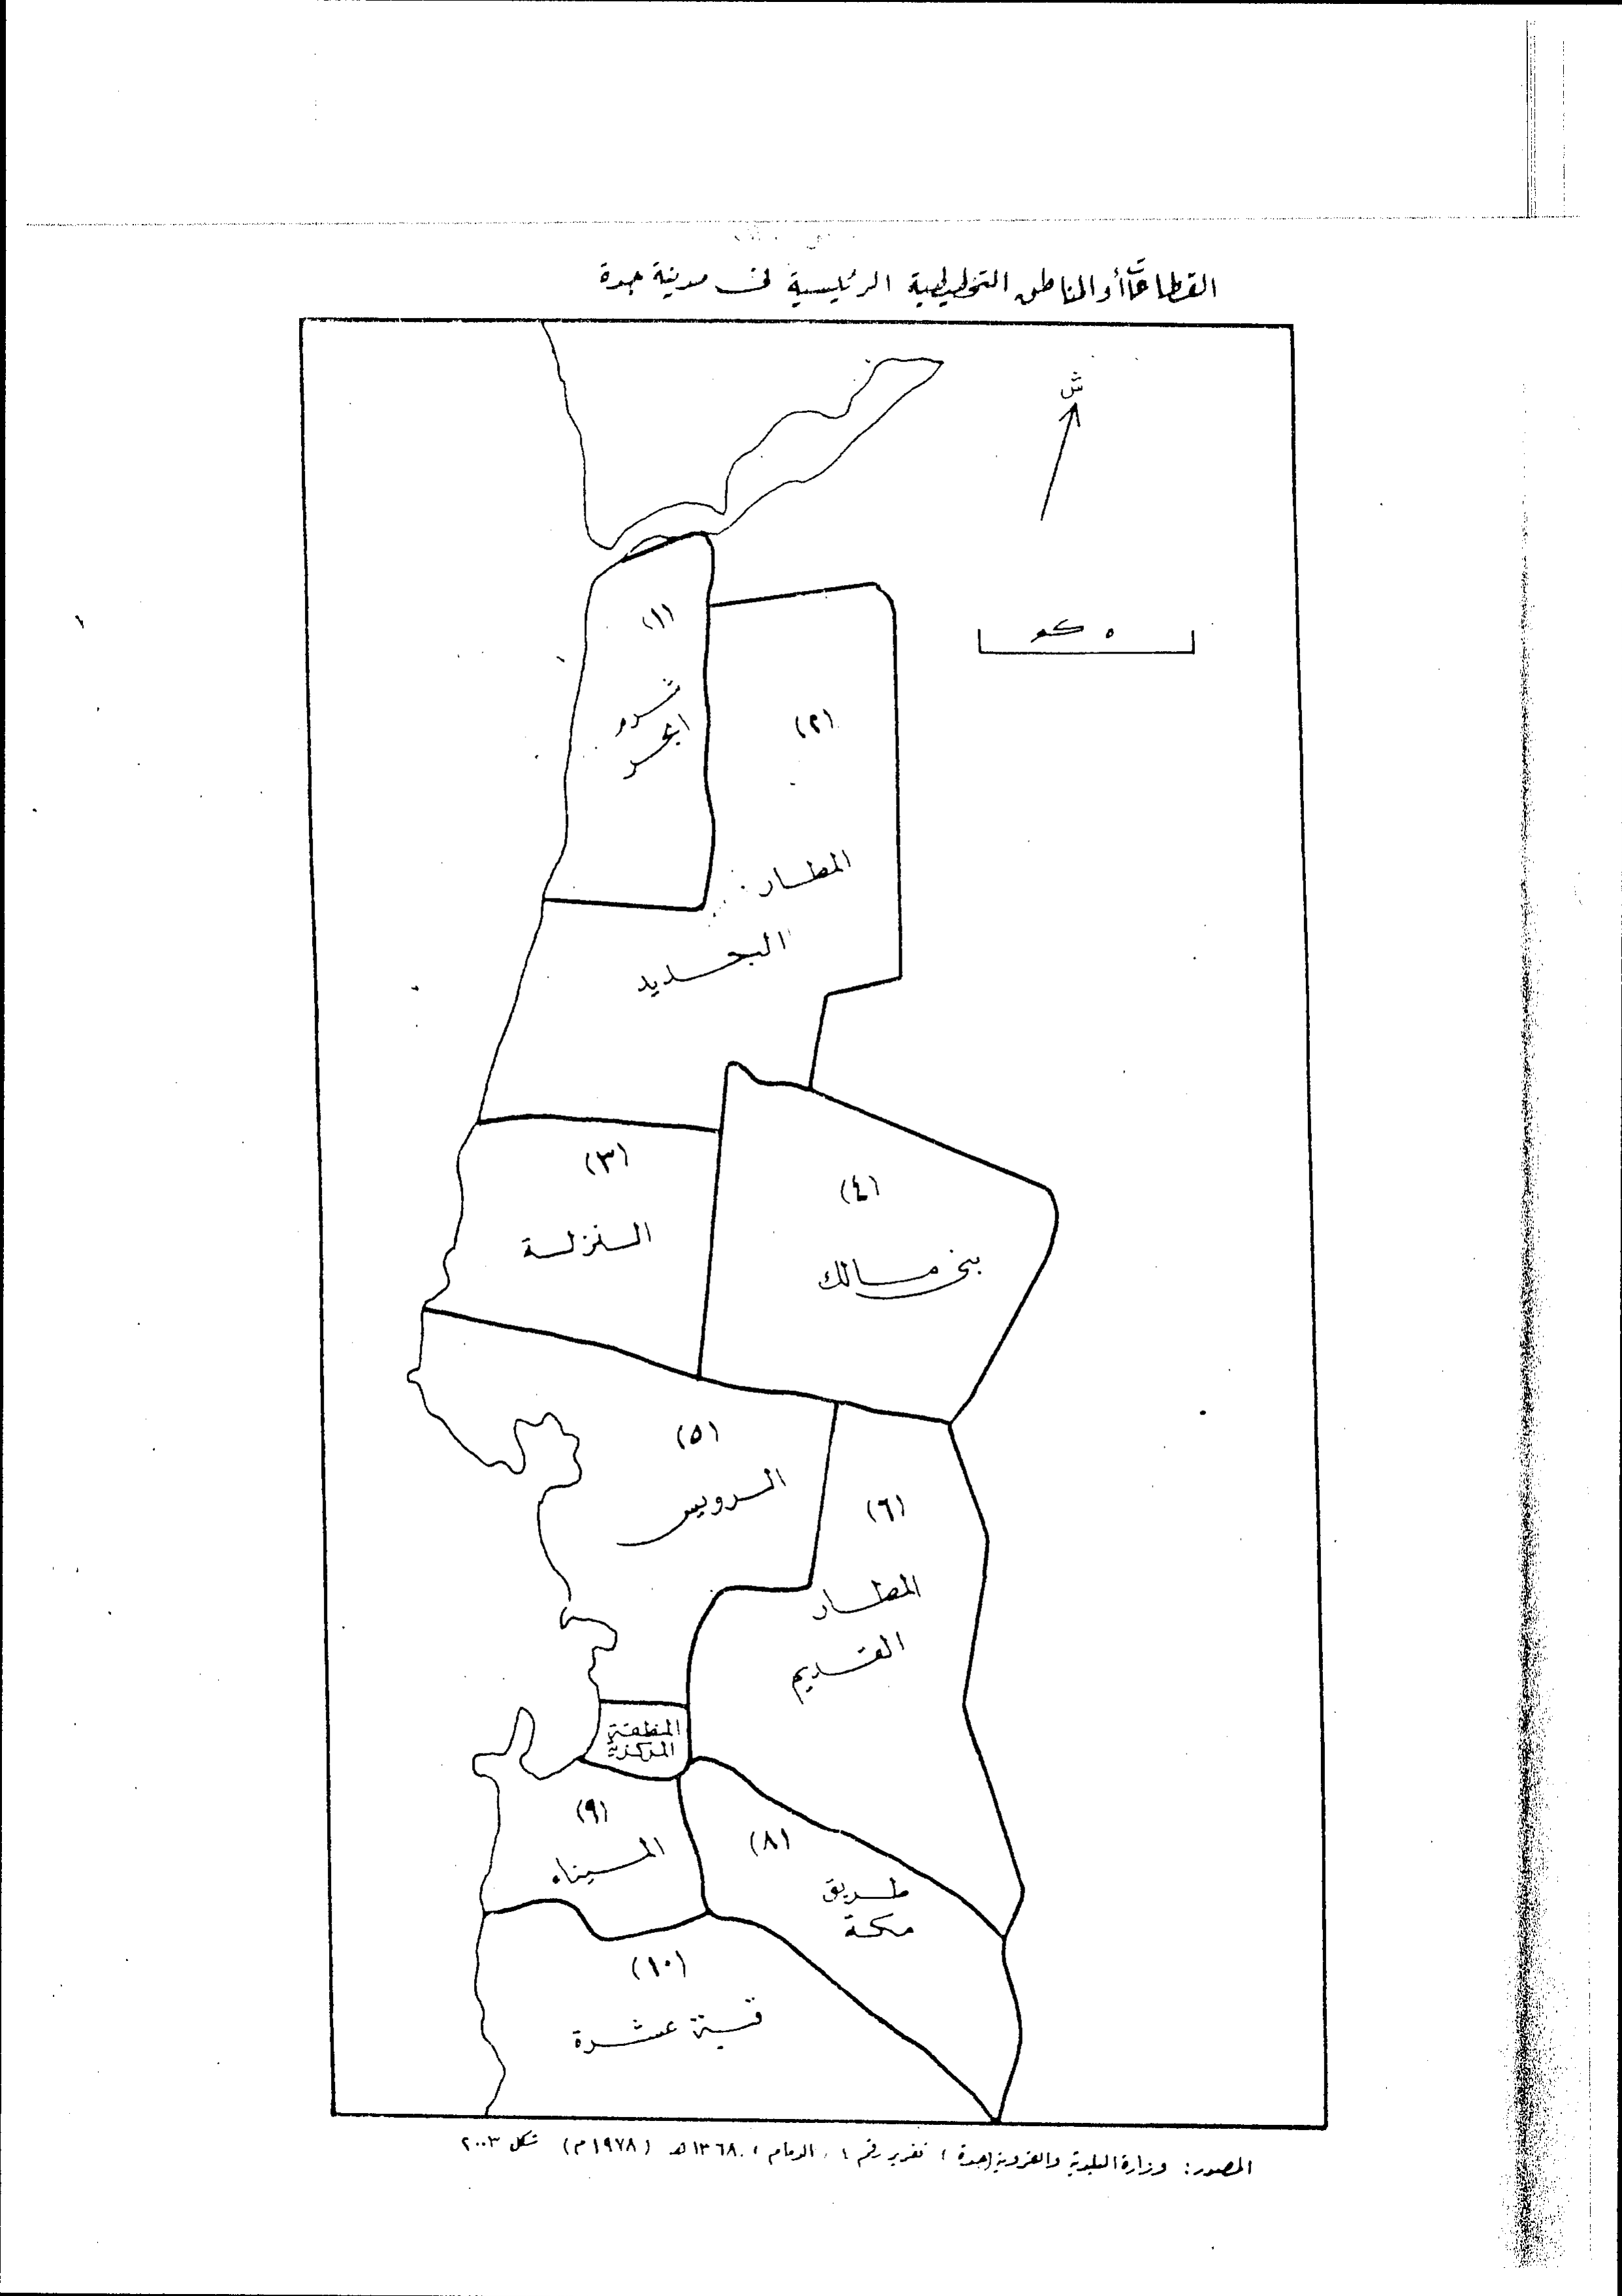 القطاعات أو المناطق التخطيطية الرئيسية في مدينة جدة
ش
٥ كم
(١)
شرم
ابحر
(٢)
المطار
الجديد
(٣)
النزلة
(٤)
بني مالك
(٥)
الرويس
(٦)
المطار
القديم
المنطقة
المركزية
(٩)
الميناء
(٨)
طريق
مكة
(١٠)
قسيتة عشرة
المصدر: وزارة البلدية والقروية (جدة) تقرير رقم ١، الدمام، ١٣٦٨هـ (١٩٧٨م) شكل ٢٠٠٣